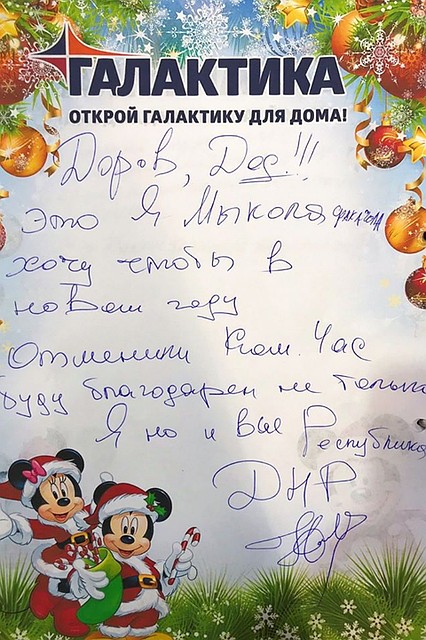 ГАЛАКТИКА
ОТКРОЙ ГАЛАКТИКУ ДЛЯ ДОМА!
Доров, Дос!!!
Это Я Мыкола
хочу чтобы в
новом году
Отменили Ком. Час
Буду благодарен не только
Я но и вся Республика
ДНР